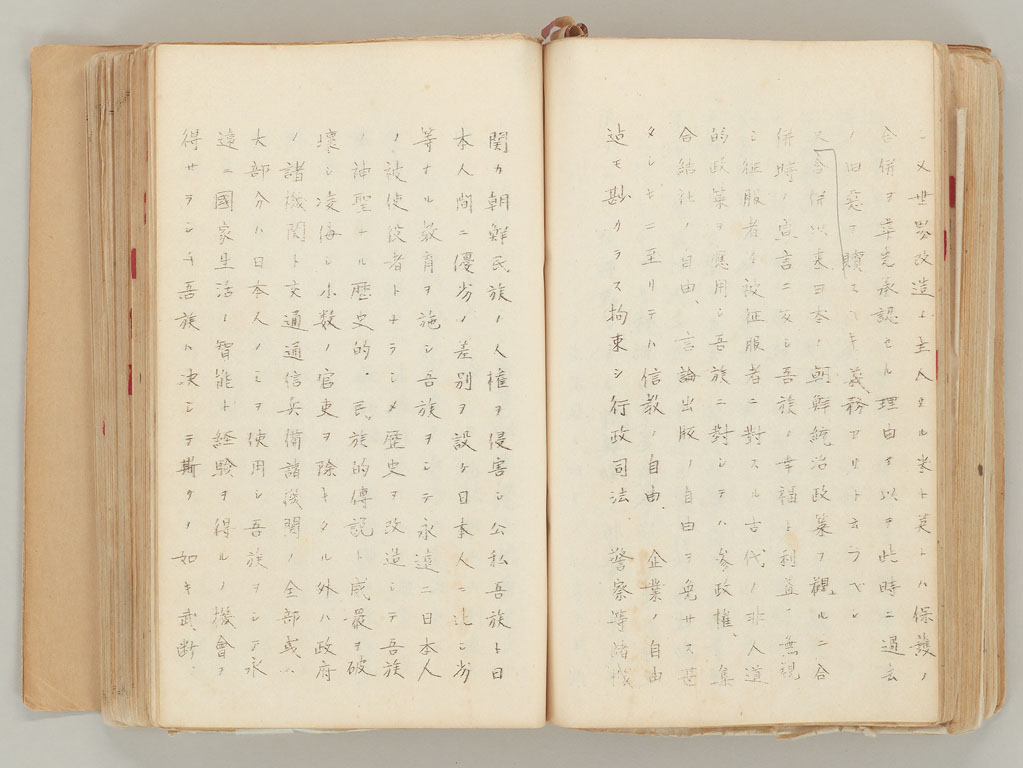 シ又世界改造ノ主人タル米ト英トハ保護ノ
合併ヲ率先承認セル理由ヲ以テ此時ニ過去
ノ旧惡ヲ贖フヘキ義務アリト云フヘシ
又合併以来日本ノ朝鮮統治政策ヲ觀ルニ合
併時ノ宣言ニ反シ吾族ノ幸福ト利益ヲ無視
シ征服者カ被征服者ニ對スル古代ノ非人道
的政策ヲ應用シ吾族ニ對シテハ參政權、集
会結社ノ自由、言論出版ノ自由ヲ免サス甚
タシキニ至リテハ信教ノ自由、企業ノ自由
迠モ尠クラス拘束シ行政司法 警察等諸機
関カ朝鮮民族ノ人權ヲ侵害シ公私吾族ト日
本人間ニ優劣ノ差別ヲ設ケ日本人ニ比シ劣
等ナル教育ヲ施シ吾族ヲシテ永遠ニ日本人
ノ被使役者トナラシメ歴史ヲ改造シテ吾族
ノ神聖ナル歴史的、民族的傳説ト威嚴ヲ破
壊シ凌侮シ小数ノ官吏ヲ除キタル外ハ政府
ノ諸機関ト交通通信兵備諸機関ノ全部或ハ
大部分ハ日本人ノミヲ使用シ吾族ヲシテ永
遠ニ國家生活ノ智能ト経験ヲ得ルノ機會ヲ
得サラシム吾族ハ决シテ斯クノ如キ武断、